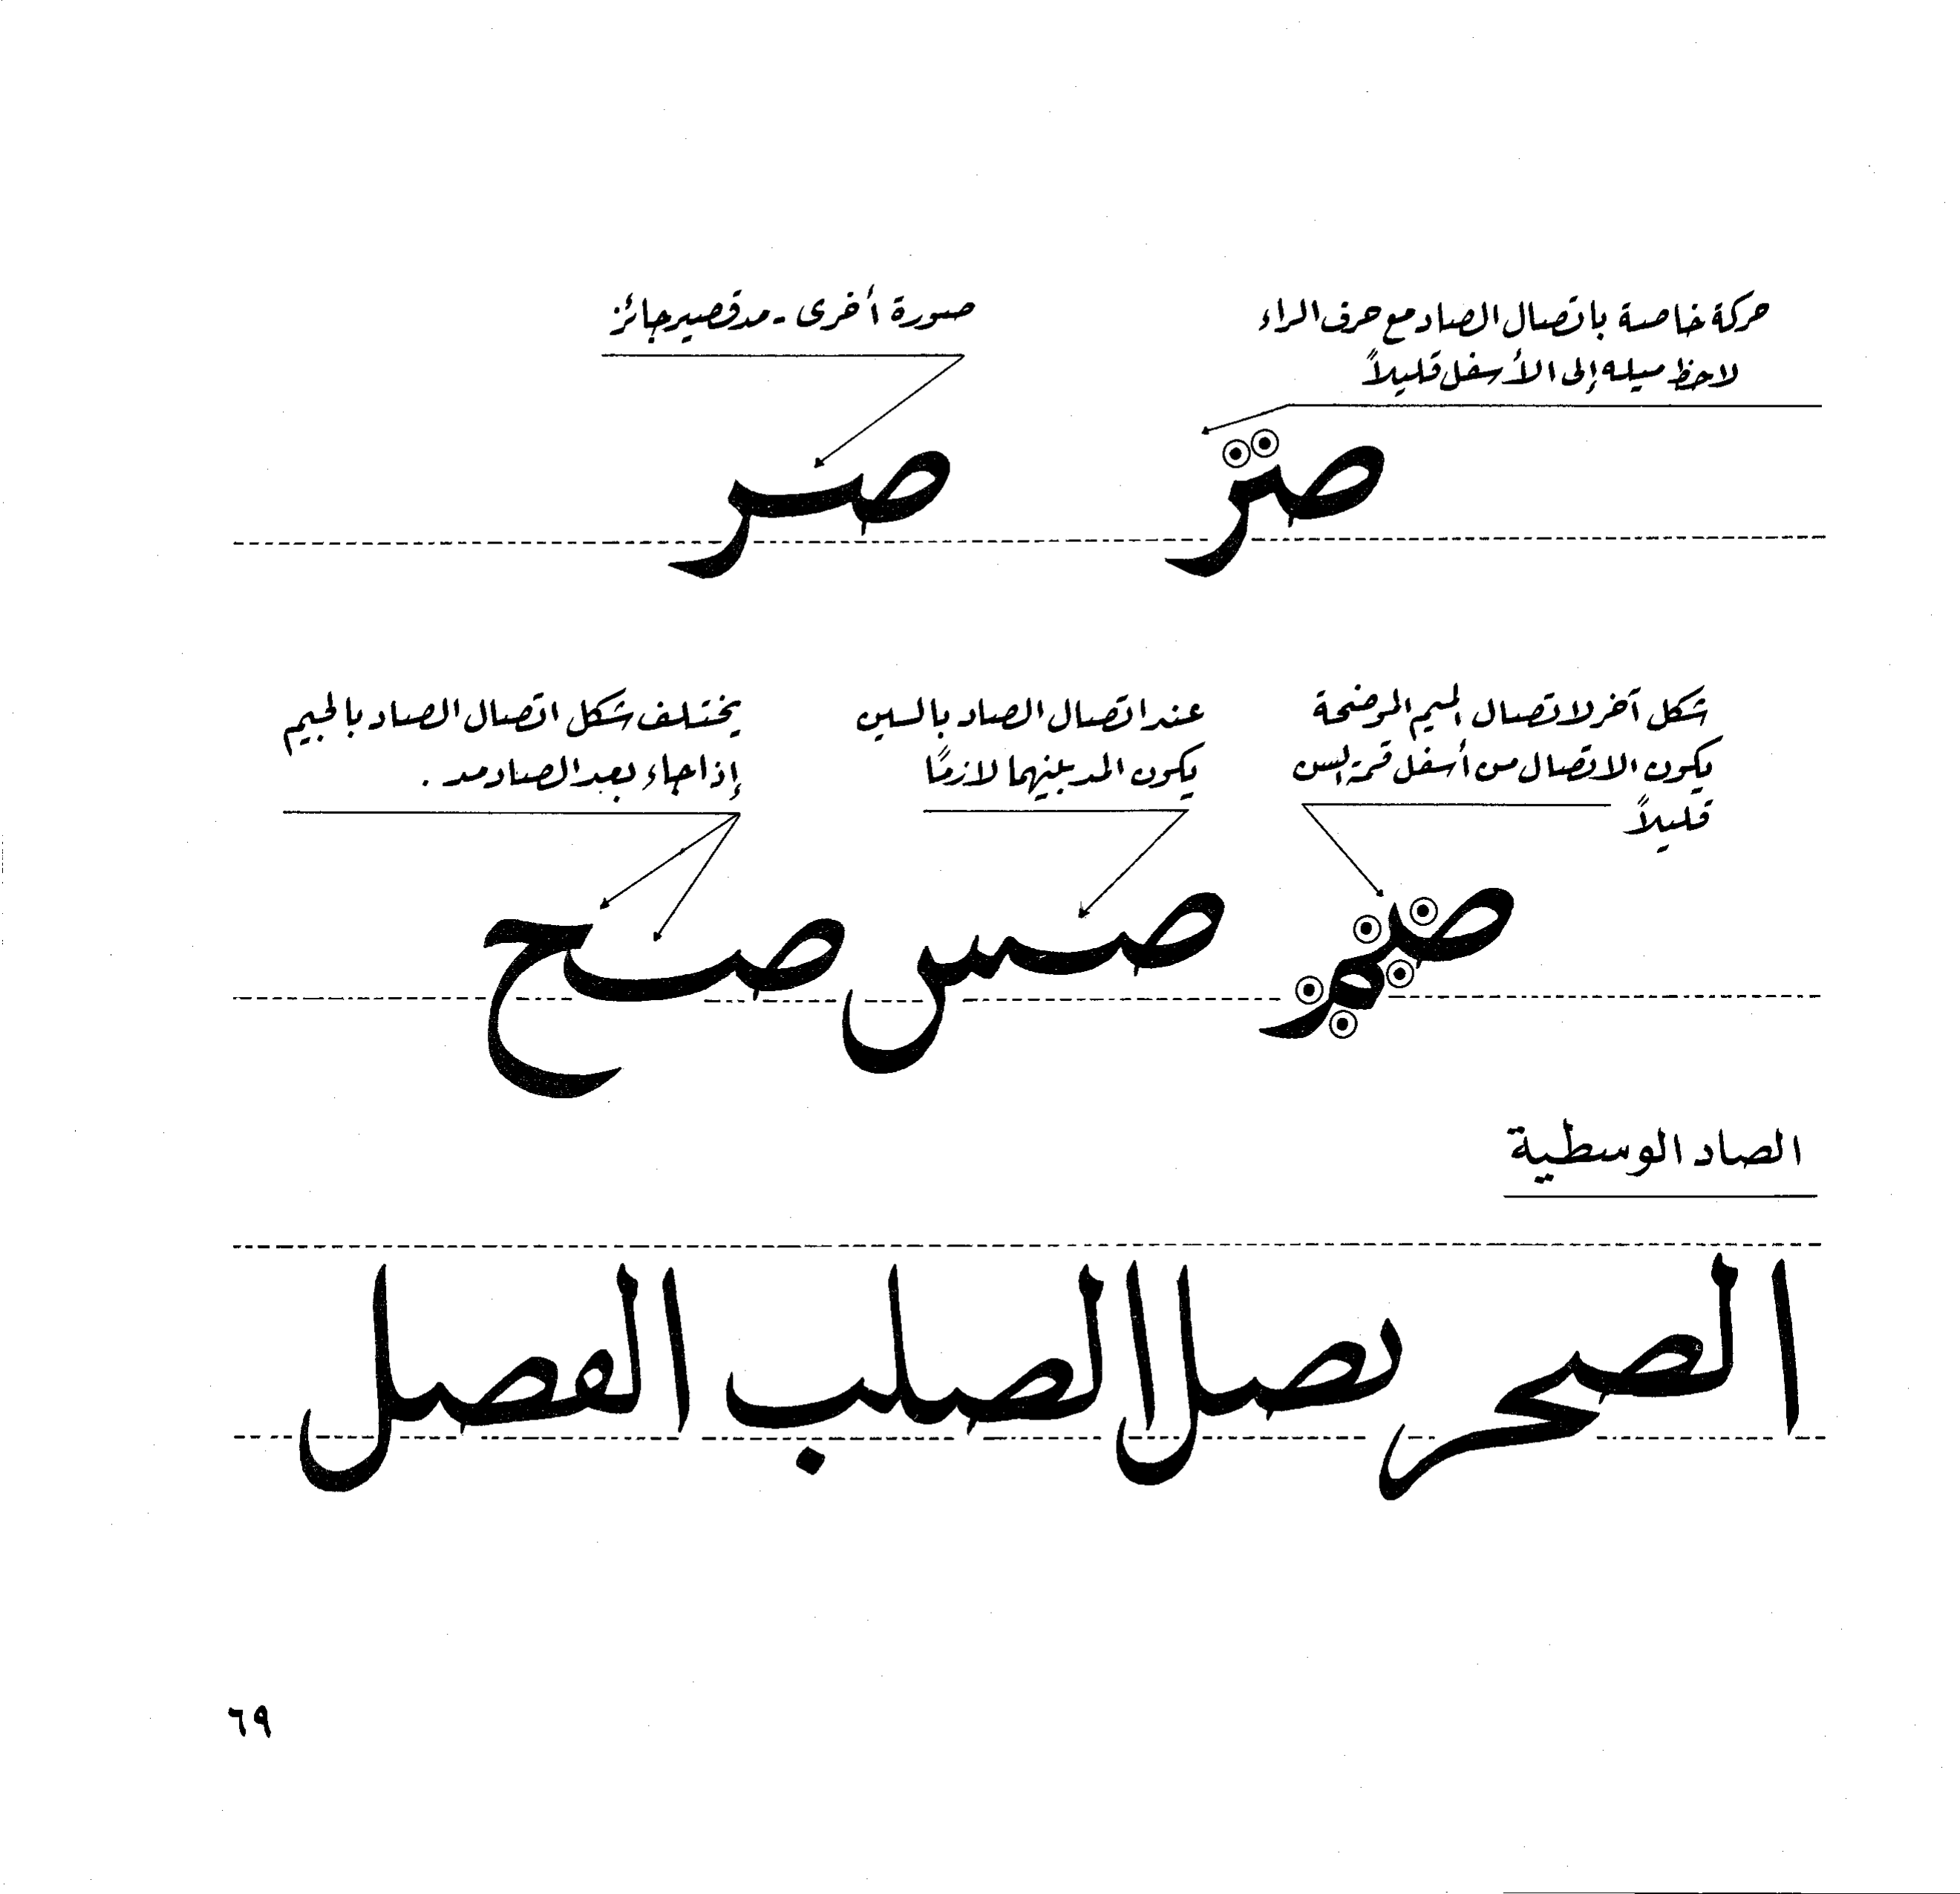 حركة خاصة باتصال الصاد مع حرف الراء
لاحظ ميله إلى الأسفل قليلاً
صورة أخرى - مد قصير جائز
صر صر
شكل آخر لاتصال الميم الموضحة
يكون الاتصال من أسفل قمة السن
قليلاً
عند اتصال الصاد بالسين
يكون المد بينهما لازمًا
يختلف شكل اتصال الصاد بالجيم
إذا جاء بعد الصاد مد .
صمر صس صح
الصاد الوسطية
الصحر ىصل الصلب الفصل
٦٩